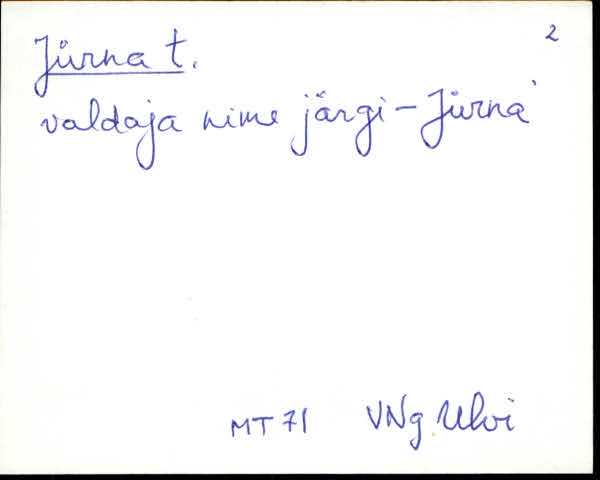 2
Jürna t.
valdaja nime järgi - Jürna'
MT 71 VNg Ulvi